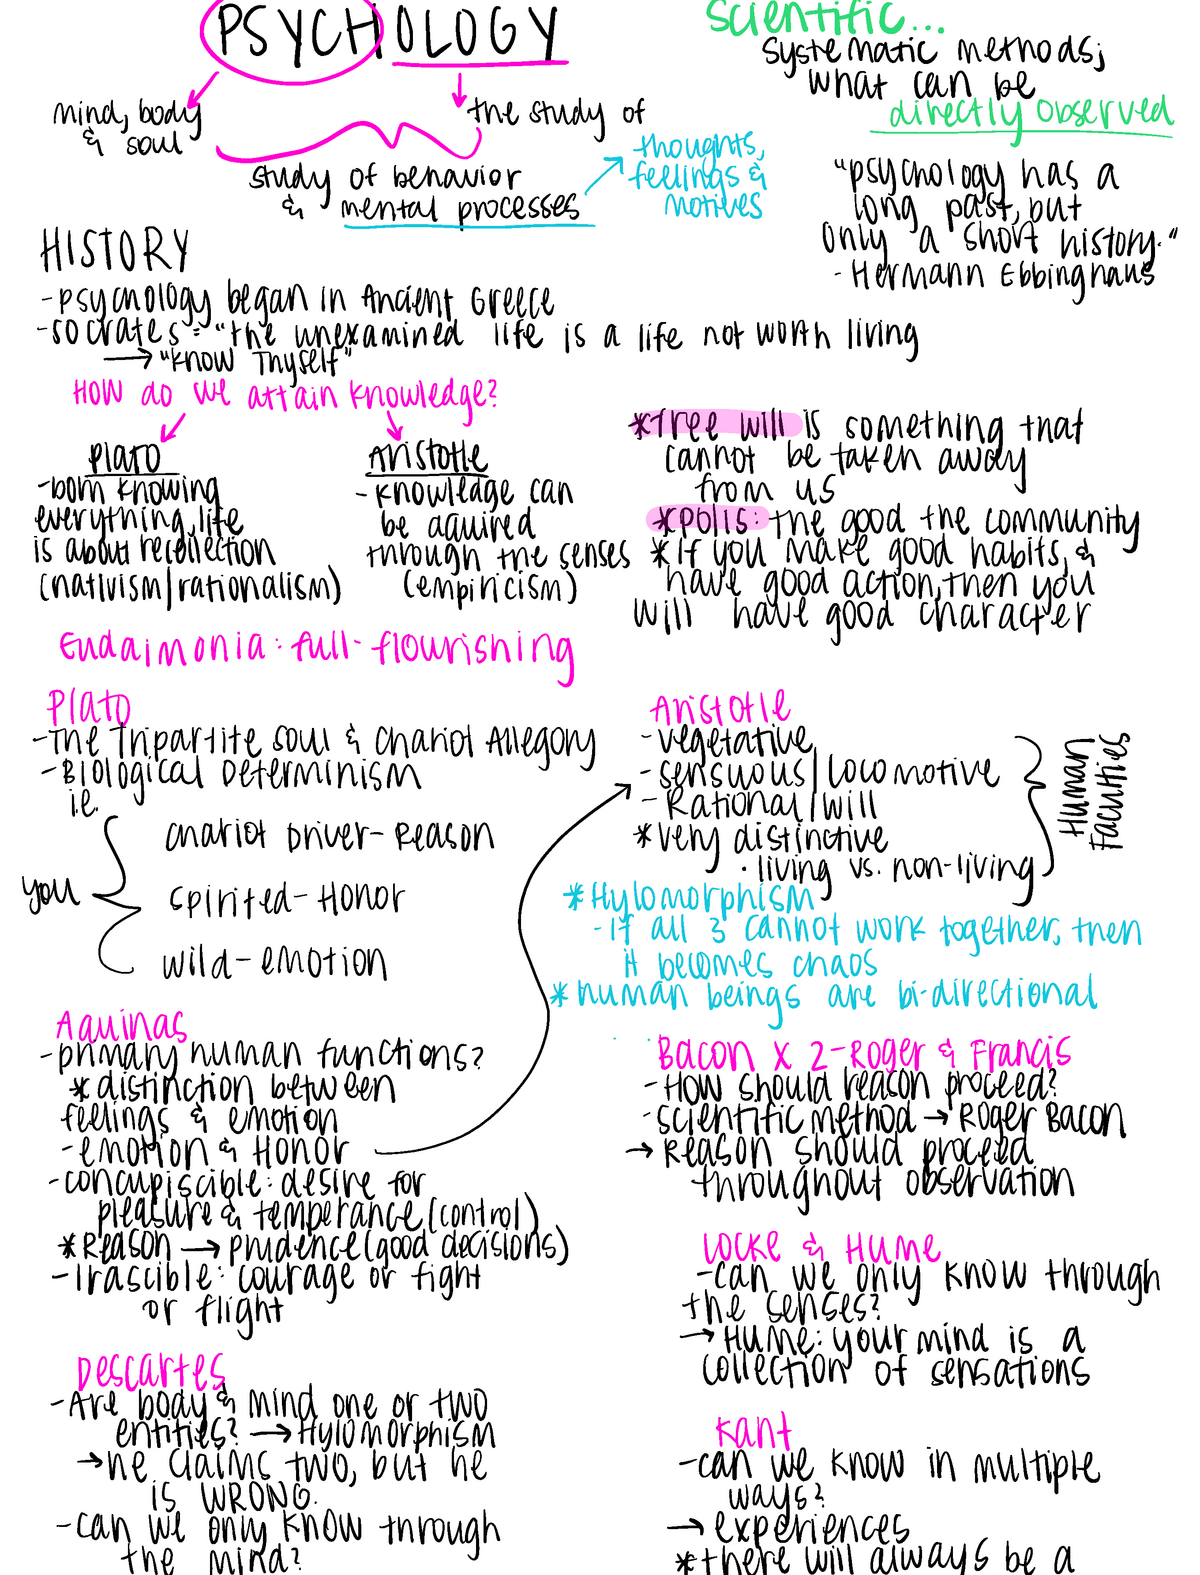 PSYCHOLOGY
mind, body
& soul
the study of
study of behavior
& mental processes
thoughts,
feelings &
motives
Scientific...
systematic methods;
what can be
directly observed
"psychology has a
long past, but
only a short history."
- Hermann Ebbinghaus
HISTORY
- psychology began in Ancient Greece
- socrates = "the unexamined life is a life not worth living
→ "know Thyself"
HOW do we attain knowledge?
Plato
- born knowing
everything, life
is about recollection
(nativism/rationalism)
Aristotle
- knowledge can
be aquired
through the senses
(empiricism)
*free will is something that
cannot be taken away
from us
*polis: the good the community
*If you make good habits, &
have good action, then you
will have good character
Eudaimonia: full-flourishing
Plato
- The Tripartite soul & Chariot Allegory
- Biological Determinism
i.e.
you
chariot Driver - Reason
spirited - Honor
wild - emotion
Aristotle
- vegetative
- sensuous/locomotive
- Rational/will
*very distinctive
· living vs. non-living
Human
Faculties
*Hylomorphism
- If all 3 cannot work together, then
it becomes chaos
*human beings are bi-directional
Aquinas
- primary human functions?
* distinction between
feelings & emotion
- emotion & Honor
- concupiscible: desire for
pleasure & temperance (control)
*Reason → prudence (good decisions)
- Irascible: courage or fight
or flight
Bacon x 2 - Roger & Francis
- How should reason proceed?
- scientific method → Roger Bacon
→ Reason should proceed
throughout observation
Locke & Hume
- can we only know through
the senses?
→ Hume: your mind is a
collection of sensations
Descartes
- Are body & mind one or two
entities? → Hylomorphism
→ he claims two, but he
is WRONG.
- can we only know through
the mind?
Kant
- can we know in multiple
ways?
→ experiences
*there will always be a